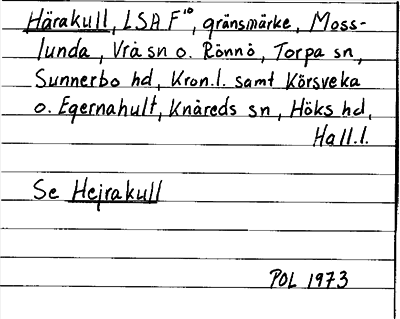 Härakull, LSA F¹⁰, gränsmärke, Moss-
lunda, Vrå sn o. Rönnö, Torpa sn,
Sunnerbo hd, Kron.l. samt Körsveka
o. Egernahult, Knäreds sn, Höks hd,
Hall.l.
Se Hejrakull
POL 1973